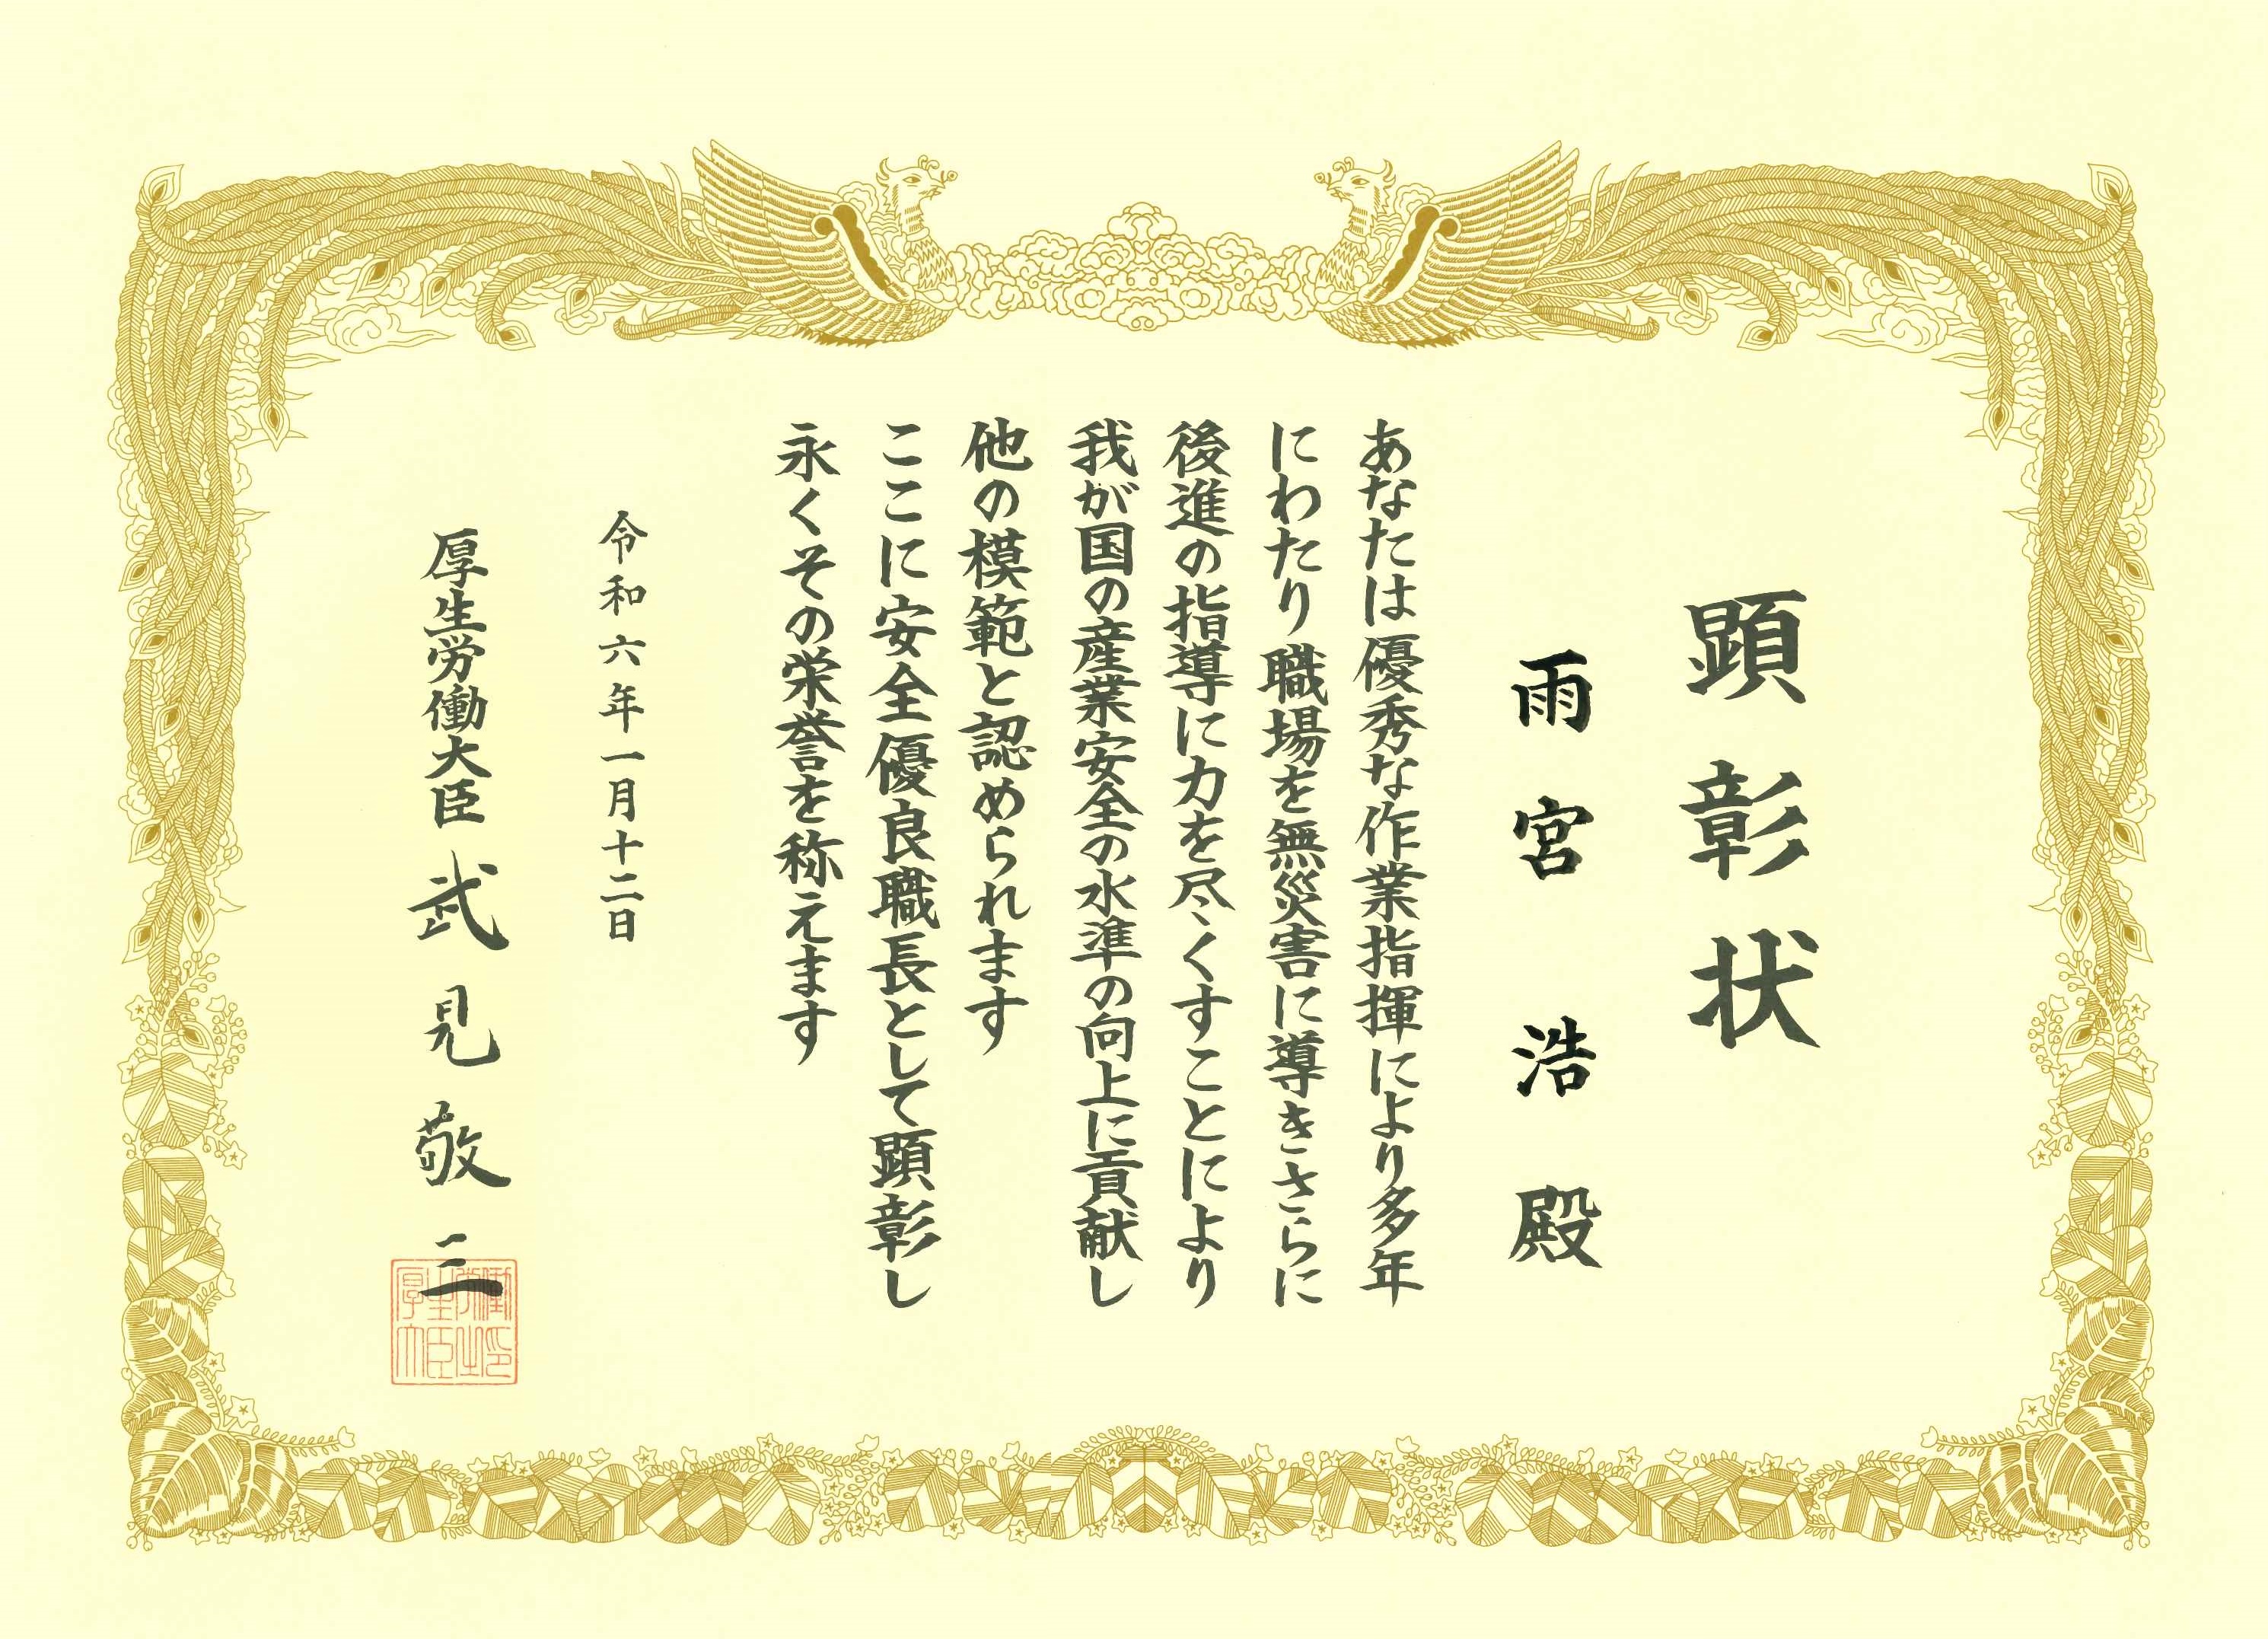 顕彰状
雨宮浩殿
あなたは優秀な作業指揮により多年
にわたり職場を無災害に導きさらに
後進の指導に力を尽くすことにより
我が国の産業安全の水準の向上に貢献し
他の模範と認められます
ここに安全優良職長として顕彰し
永くその栄誉を称えます
令和六年一月十二日
厚生労働大臣 武見敬三
厚生労働大臣之印